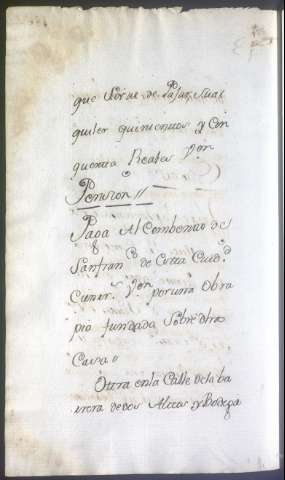 que Sirue de Pajar, su al
quiler quinientos y Cin
quenta Reales Von
Pension //
Paga Al Combento de
Sanfranco de Cuidd
por una Obra
pia fundada Sobre dha
Casa //
Ottra en la Calle de la ba
rrera de dos Alttos y Bodega